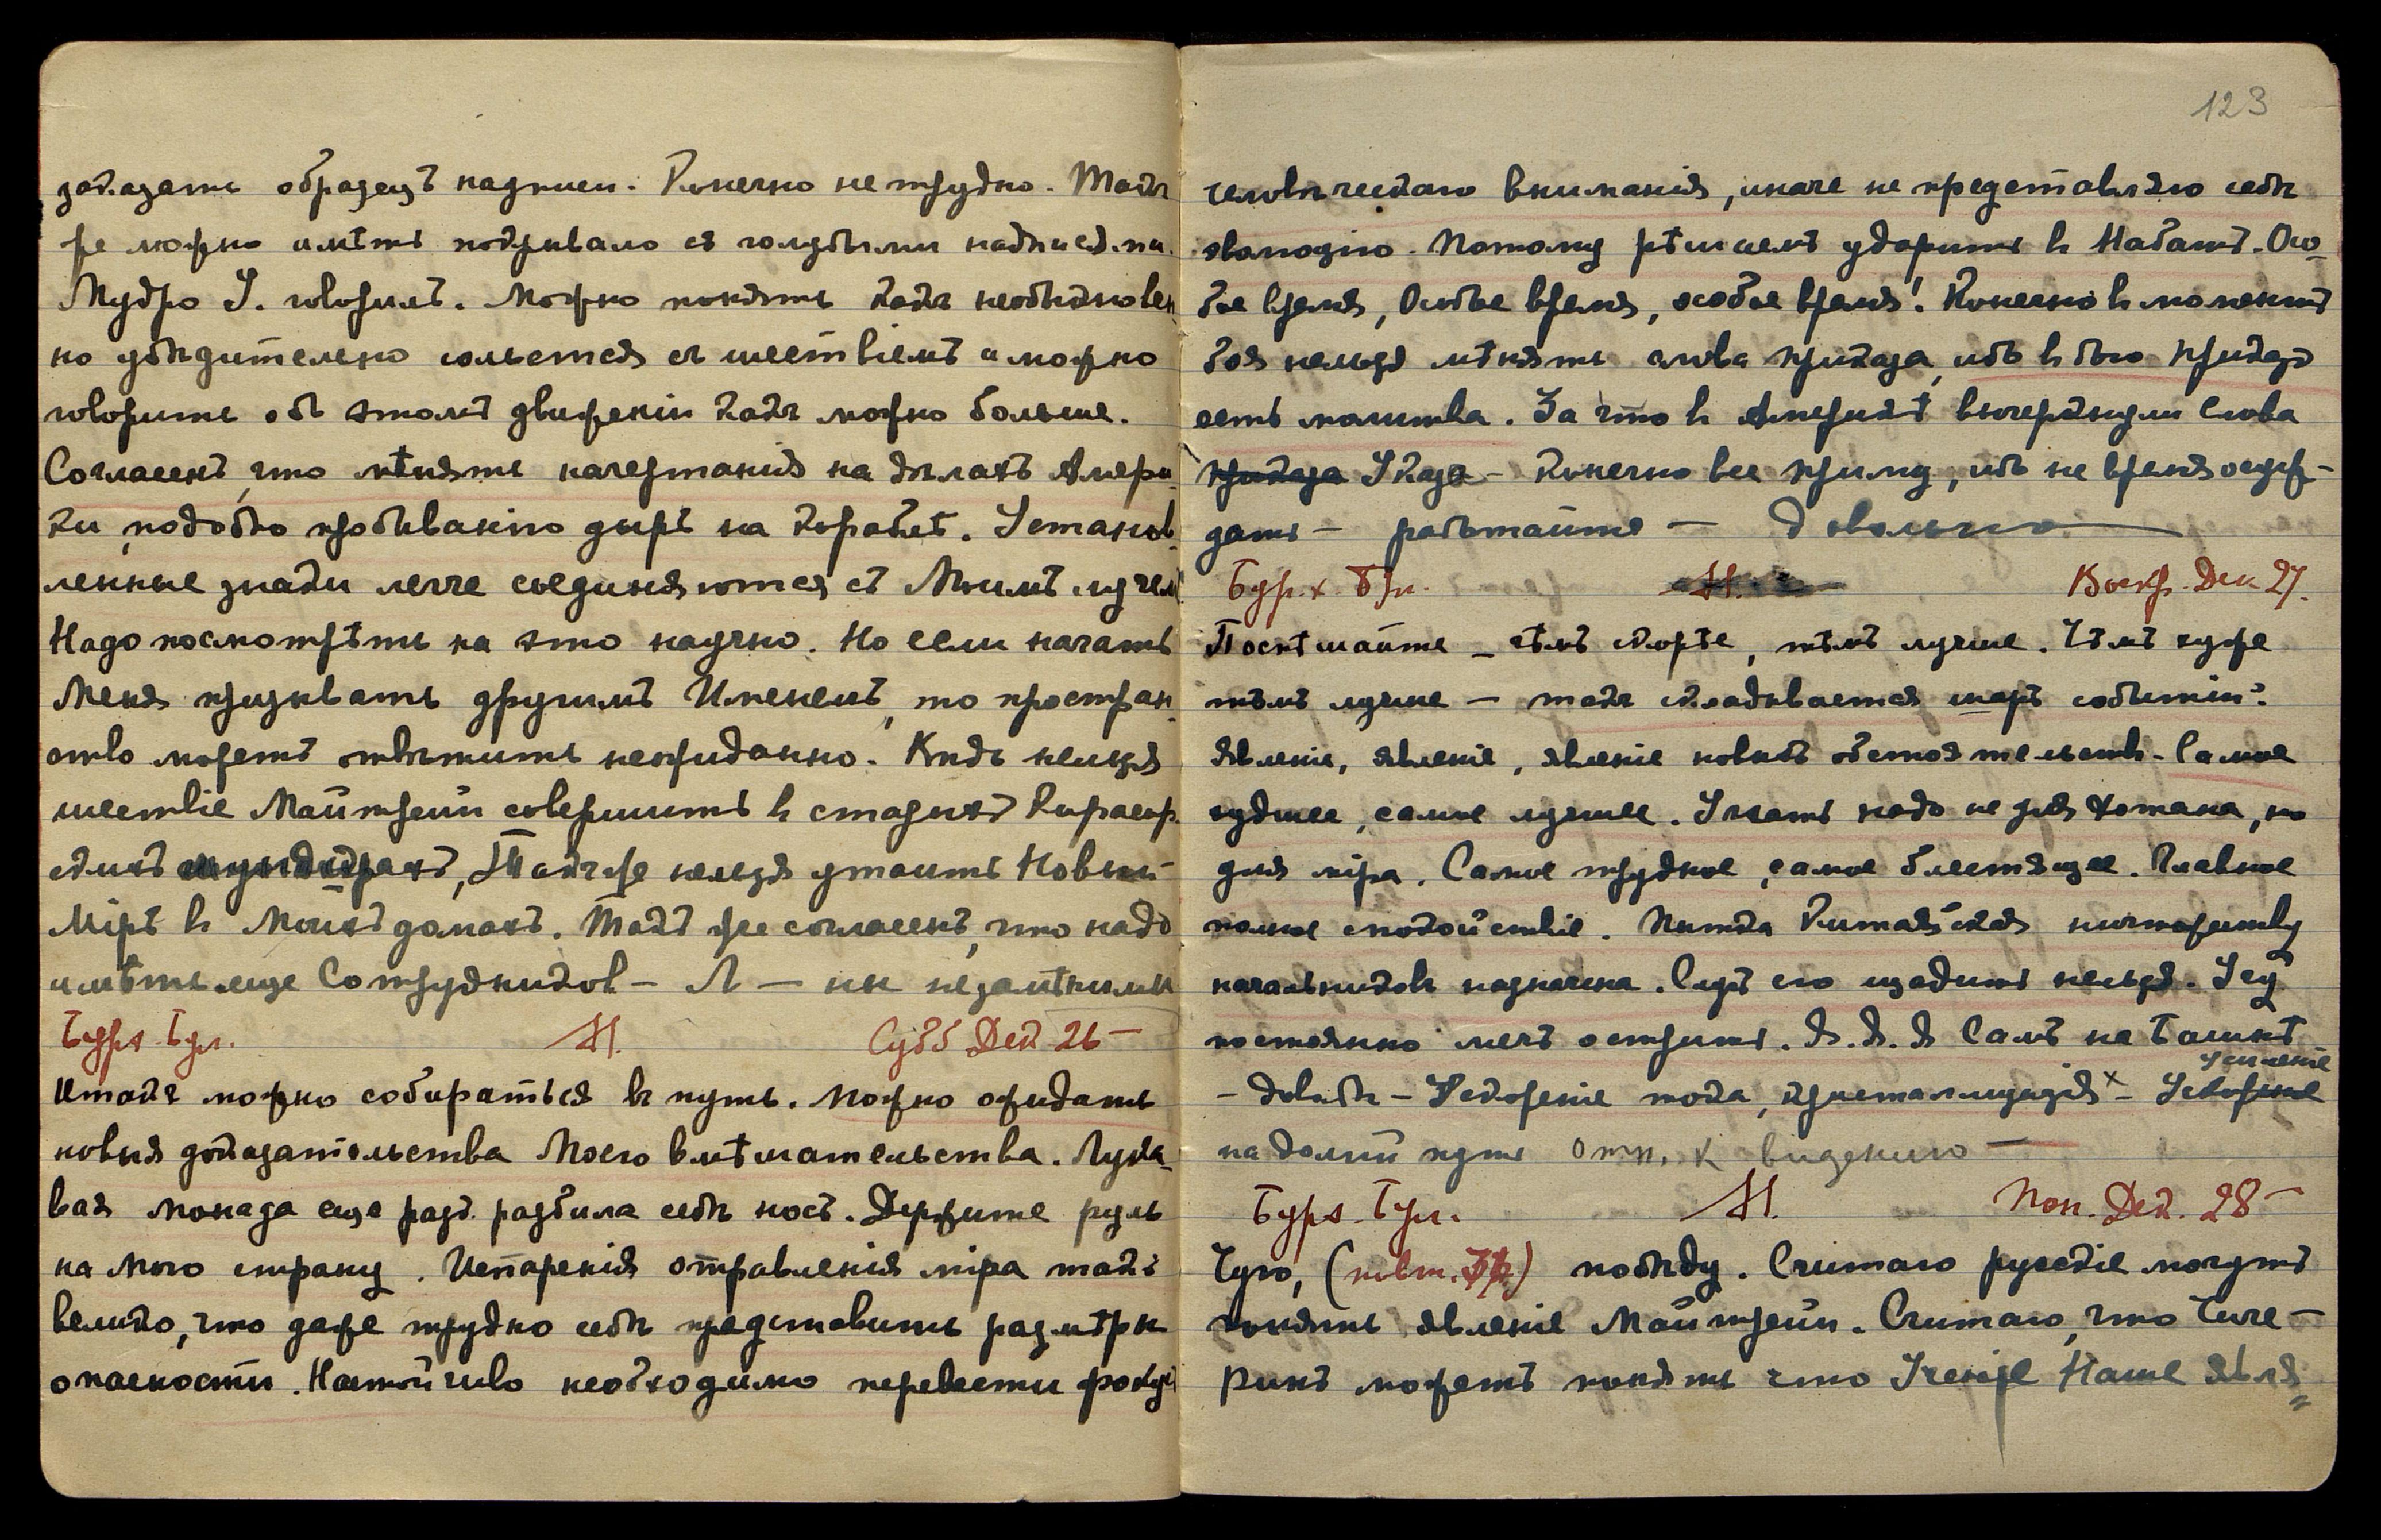 заказать образецъ надписи. Конечно не трудно. Такъ
же можно имѣть покрывало съ голубыми надписями.
Мудро У. говоритъ. Можно понять какъ необыкновен
но убѣдительно сольется съ шествіемъ и можно
говорить объ этомъ движеніи какъ можно больше.
Согласенъ, что мѣнять начертанія на дѣлахъ Амери
ки, подобно пробиванію дыръ на кораблѣ. Установ
ленные знаки легче соединяются съ Моимъ лучемъ
Надо посмотрѣть на это научно. Но если начать
Меня призывать другимъ Именемъ, то простран
ство можетъ отвѣтить неожиданно. Кидь нельзя
шествіе Майтрейи совершить въ старыхъ Кирасир
скихъ мундирахъ, Также нельзя утаить Новый
Міръ въ Моихъ домахъ. Такъ же согласенъ, что надо
имѣть еще Сотрудниковъ – Л – ны незамѣнимы
Бурх. Бул. М. Субб Дек 26 –
Итакъ можно собираться въ путь. Можно ожидать
новыя доказательства Моего вмѣшательства. Лука
вая монада еще разъ разбила себѣ носъ. Держите руль
на Мою страну. Испаренія отравленія міра такъ
велико, что даже трудно себѣ представить размѣры
опасности. Настойчиво необходимо перевести фокусъ
123
человѣческаго вниманія, иначе не представляю себѣ
эволюцію. Потому рѣшаемъ ударить въ Набатъ. Осо
бое время, Особое время, особое время! Конечно въ моментъ
боя нельзя мѣнять слова приказа, ибо въ бою приказъ
есть молитва. За что въ Америкѣ вычеркнули слова
приказа Указа – Конечно все приму, ибо не время осуж-
дать – работайте – Довольно
Бурх. Бул. М. Воскр. Дек 27.
Поспѣшайте – чѣмъ скорѣе, тѣмъ лучше. Чѣмъ хуже
тѣмъ лучше – такъ складывается шаръ событій.
явленіе, явленіе, явленіе новыхъ обстоятельствъ. Самое
худшее, самое лучшее. Узнать надо не для Хотана, но
для міра. Самое трудное, самое блестящее. Главное
полное спокойствіе. Пытка Китайская ничтожеству
начальниковъ назначена. Судъ его щадить нельзя. Усу
постоянно мечъ остритъ. Я. Я. Я Самъ на Башнѣ
усиленіе
– довольно – Ускореніе тока, кристаллизація × – Ускореніе
на долгій путь отн. к видению –
Бурх. Бул. М. Пон. Дек. 28 –
Чую, (повт. 3 р.) побѣду. Считаю русскіе могутъ
понять явленіе Майтрейи. Считаю, что Чиче –
ринъ можетъ понять что Ученіе Наше явля